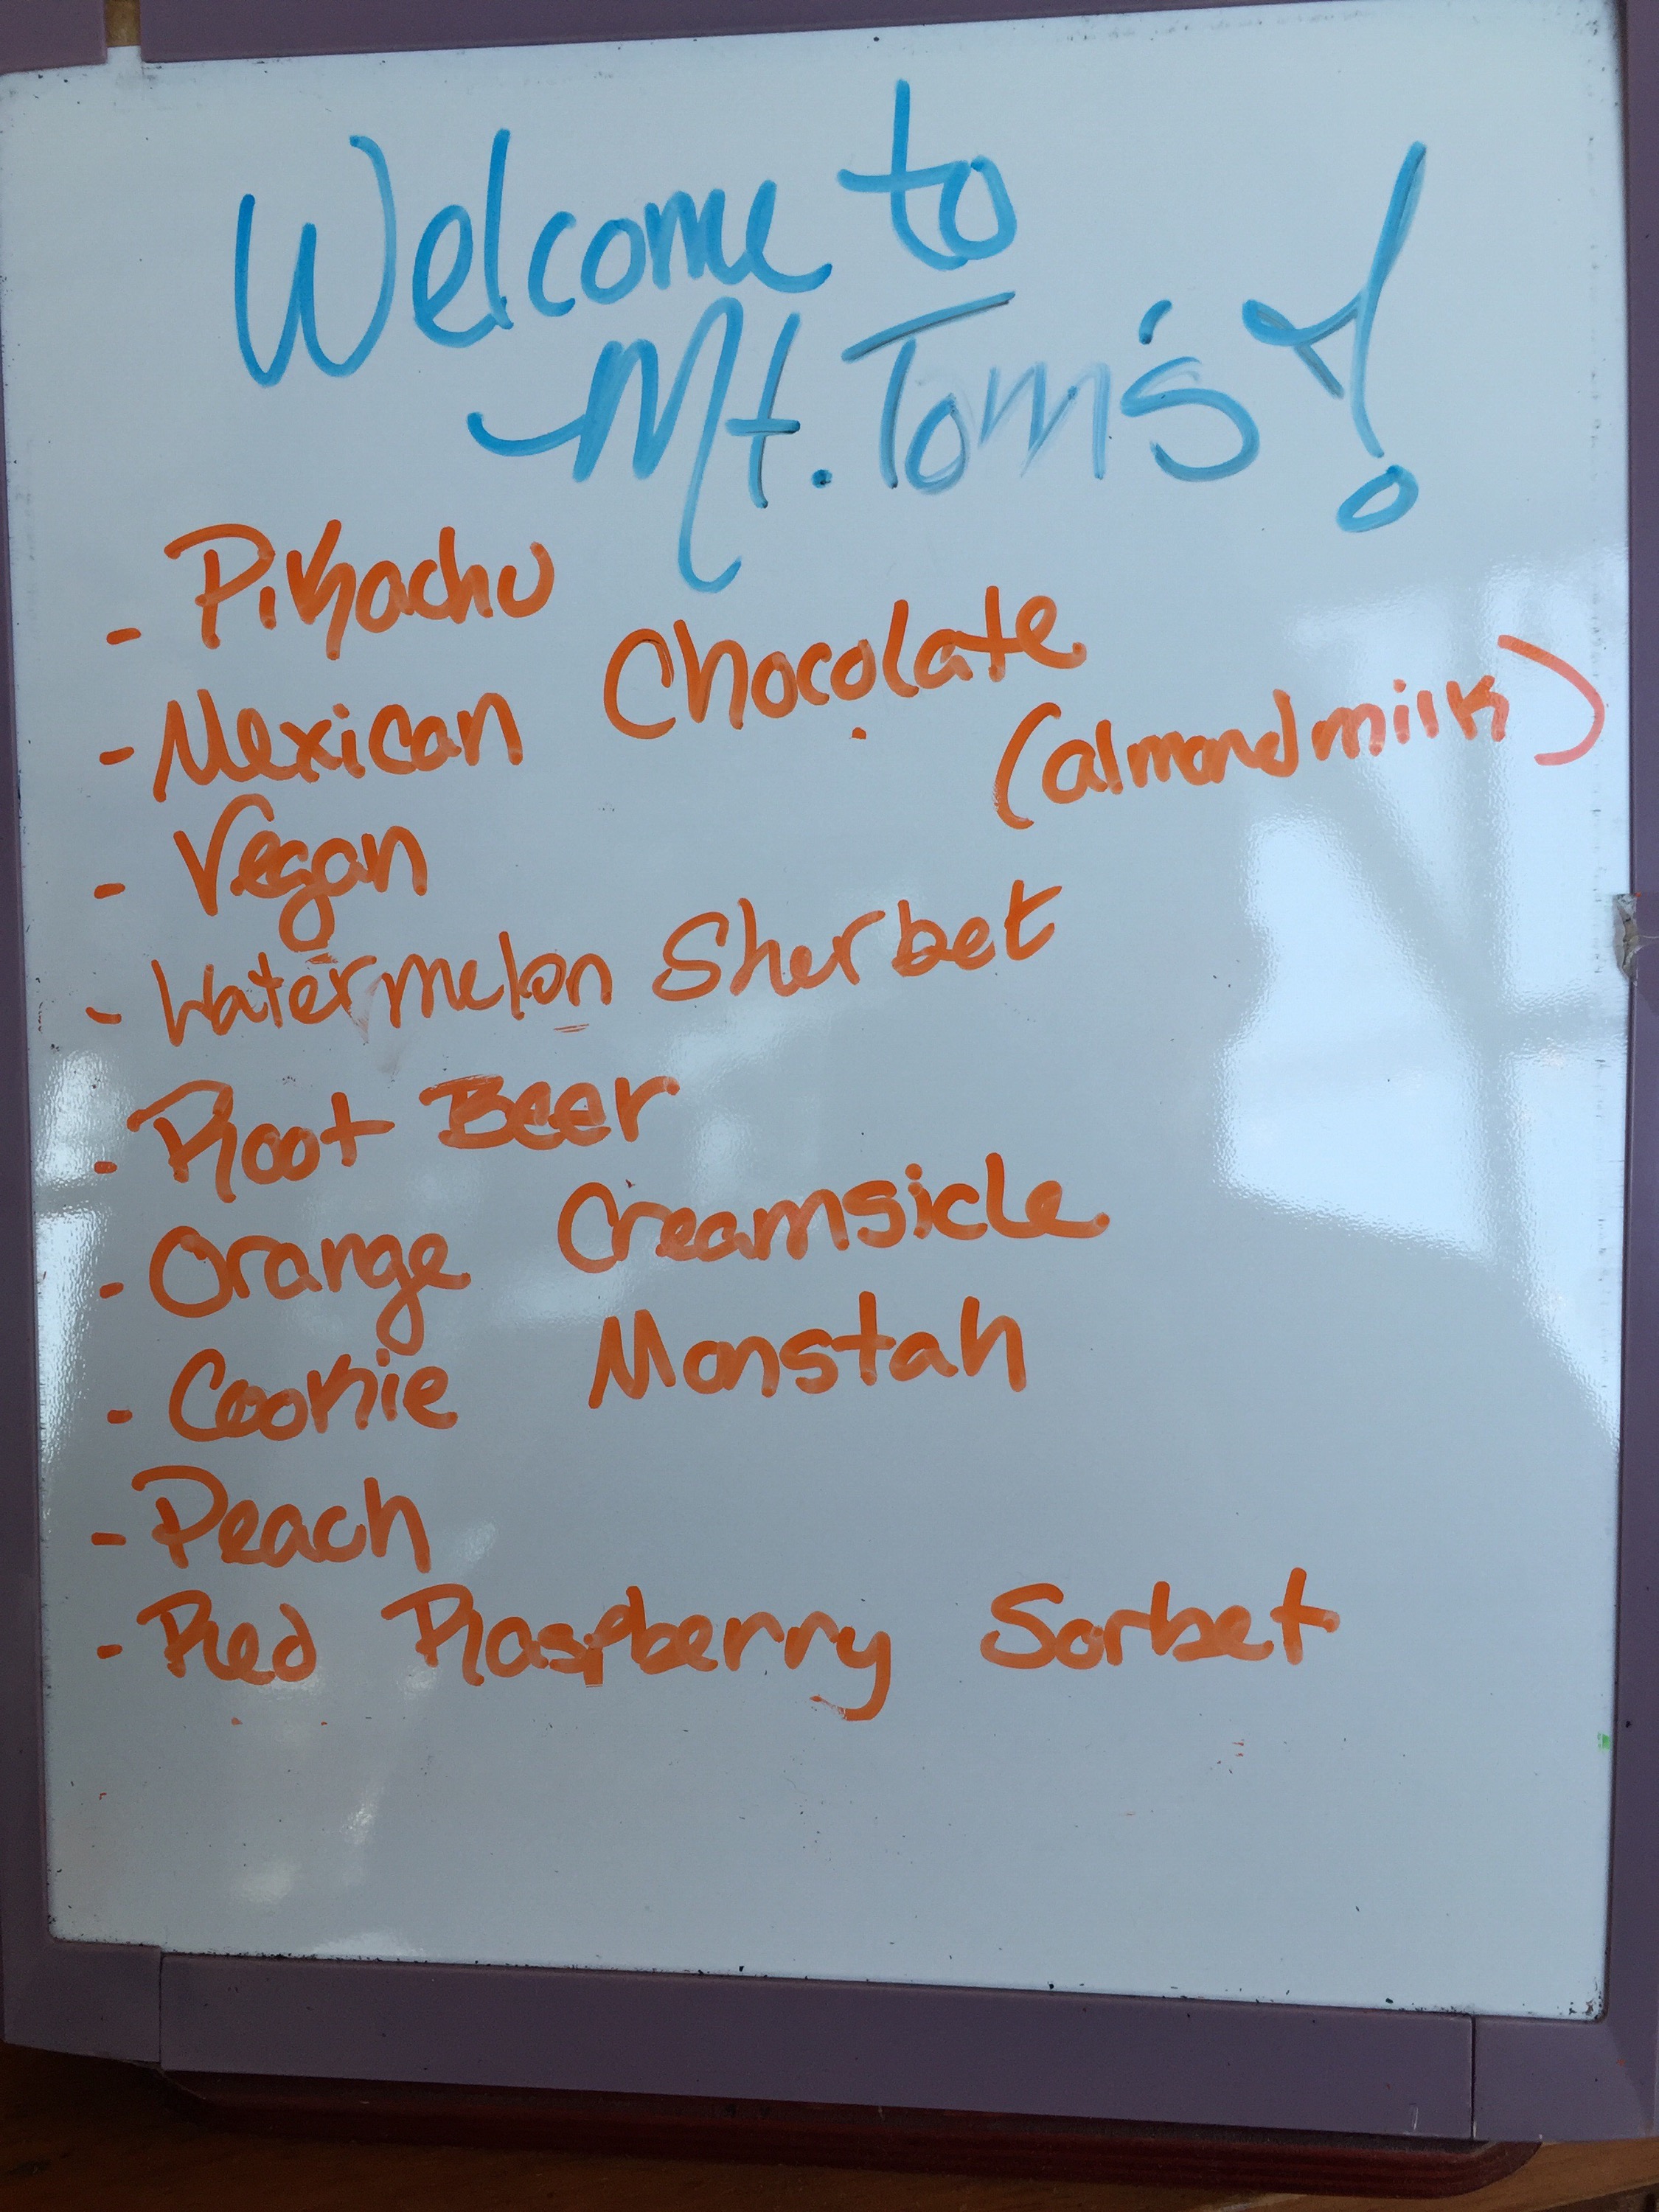 Welcome to
Mt. Tom's!
- Pikachu
- Mexican Chocolate
(almondmilk)
- Vegan
- Watermelon Sherbet
- Root Beer
- Orange Creamsicle
- Cookie Monstah
- Peach
- Red Raspberry Sorbet